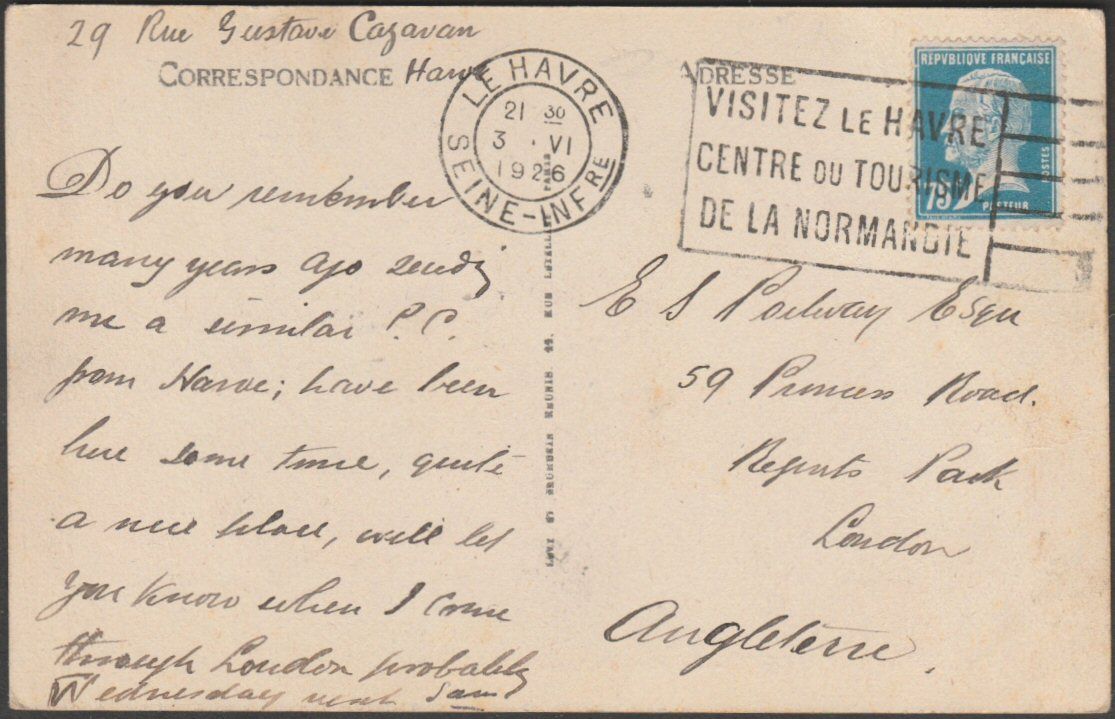 29 Rue Gustave Cazavan
CORRESPONDANCE Havre
Do you remember
many years ago sendg
me a similar P.C.
from Havre; have been
here some time, quite
a nice place, will let
you know when I come
through London probably
Wednesday next Sam
LE HAVRE
21 30
3 · VI
1926
SEINE-INFRE
ADRESSE
VISITEZ LE HAVRE
CENTRE DU TOURISME
DE LA NORMANDIE
REPVBLIQUE FRANÇAISE
POSTES
75c
PASTEUR
E S Esqu
59 Princess Road.
Regents Park
London
Angleterre.
LEVY ET NEURDEIN REUNIS 44. RUE LETELLIER PARIS